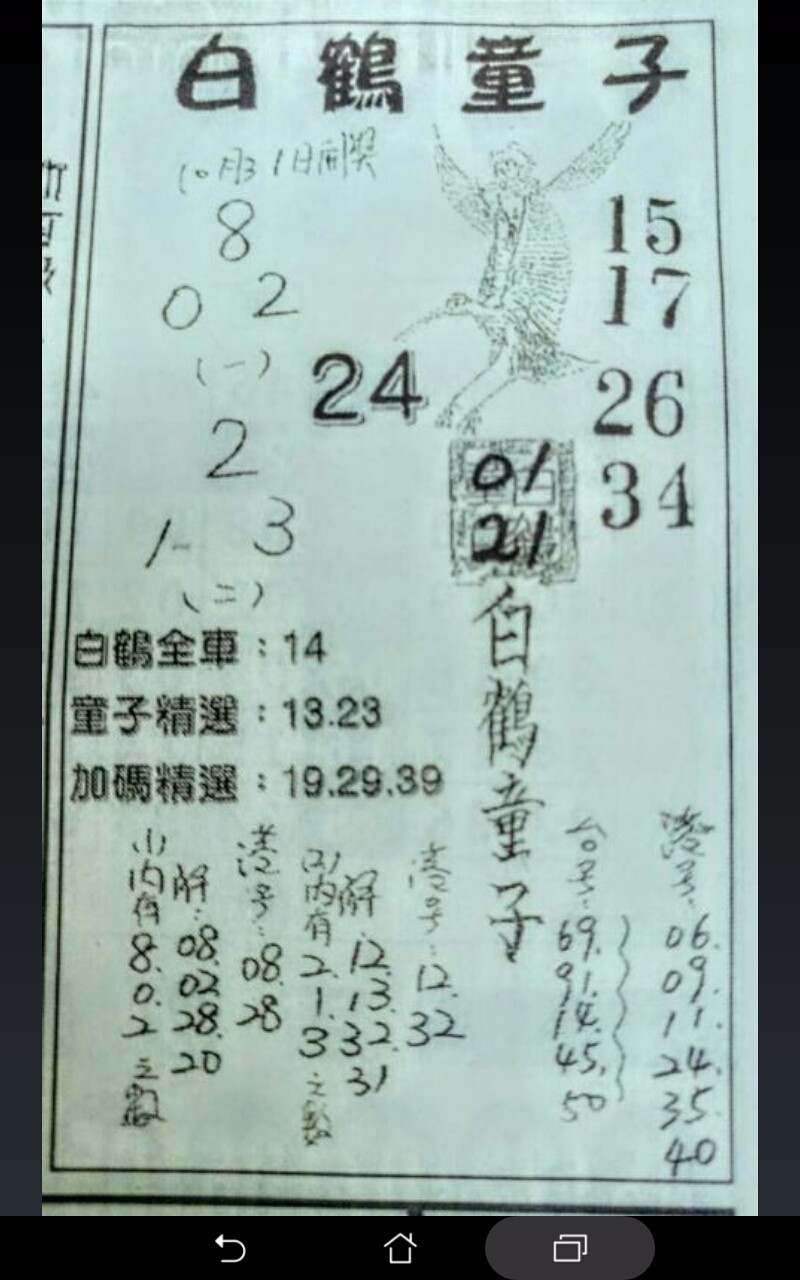 白鶴童子
10月31日開獎
8
0 2
(一)
2
1 3
(二)
24
15
17
26
34
01
21
白鶴童子
白鶴全車：14
童子精選：13.23
加碼精選：19.29.39
(1)內有
8.
0.
2
之數
解：
08.
02
28.
20
港号：
08.
28
(2)內有
2.
1.
3
之數
解：
12.
13.
32.
31
港号：
12.
32
台号：
69.
91.
14.
45.
50
港号：
06.
09.
11.
24.
35.
40